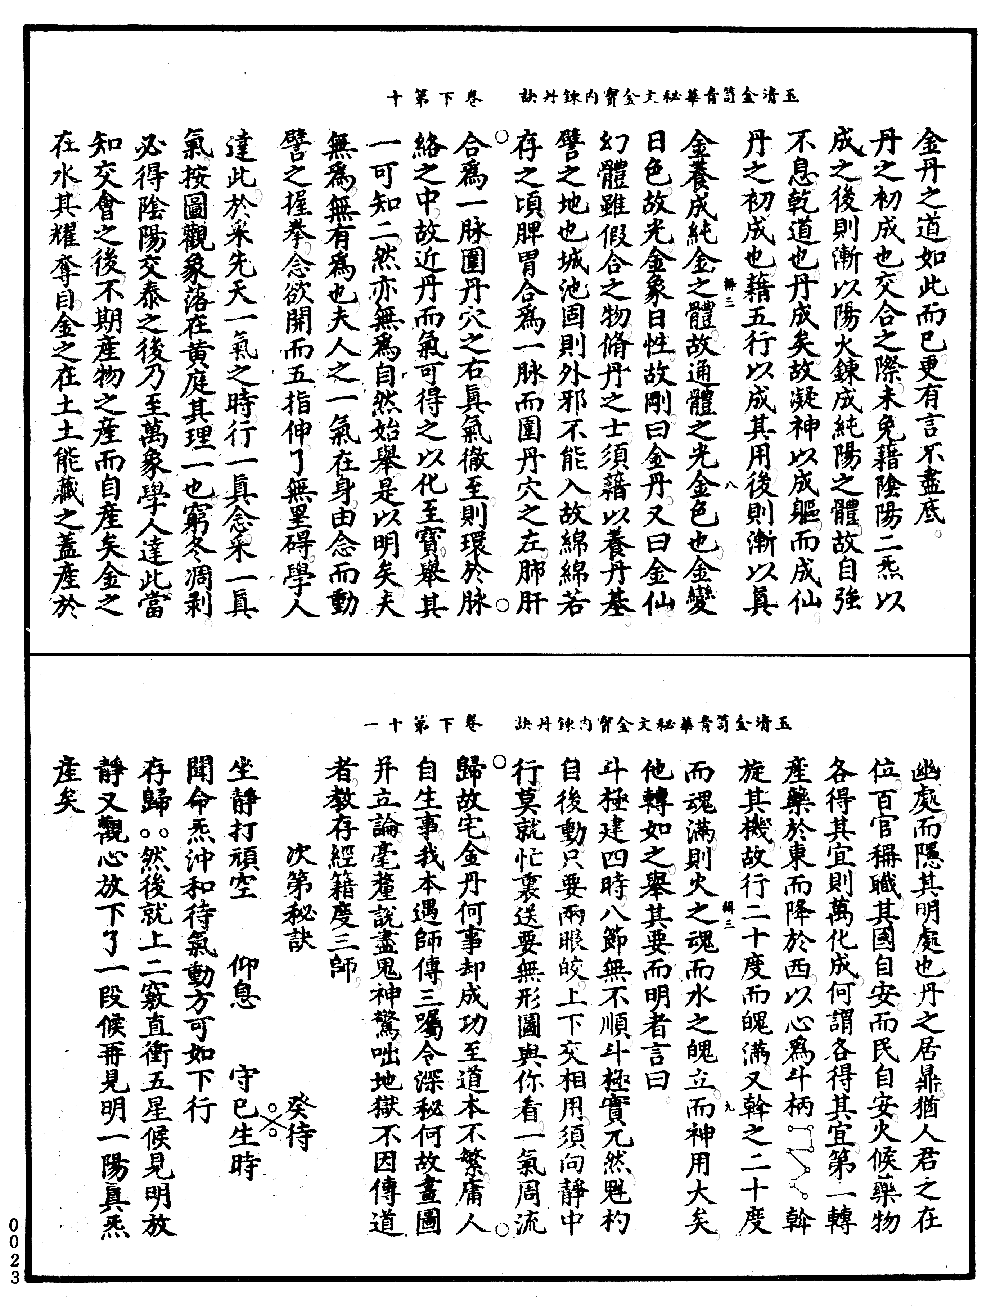 玉清金笥青華秘文金寶內鍊丹訣　卷下第十
金丹之道如此而已更有言不盡底。
丹之初成也交合之際未免藉陰陽二炁以
成之後則漸以陽火鍊成純陽之體故自強
不息乾道也丹成矣故凝神以成軀而成仙
丹之初成也藉五行以成其用後則漸以真
輯三
八
金養成純金之體故通體之光金色也金變
日色故光金象日性故剛曰金丹又曰金仙
幻體雖假合之物脩丹之士須藉以養丹基
譬之地也城池固則外邪不能入故綿綿若
存之頃脾胃合為一脉而圍丹穴之左肺肝
合為一脉圍丹穴之右真氣徹至則環於脉
絡之中故近丹而氣可得之以化至寶舉其
一可知二然亦無為自然始舉是以明矣夫
無為無有為也夫人之一氣在身由念而動
譬之握拳念欲開而五指伸了無罣碍學人
達此於采先天一氣之時行一真念采一真
氣按圖觀象落在黄庭其理一也窮冬凋剥
必得陰陽交泰之後乃至萬象學人達此當
知交會之後不期產物之產而自產矣金之
在水其耀奪目金之在土土能藏之蓋產於
玉清金笥青華秘文金寶內鍊丹訣　卷下第十一
幽處而隱其明處也丹之居鼎猶人君之在
位百官稱職其國自安而民自安火候藥物
各得其宜則萬化成何謂各得其宜第一轉
產藥於東而降於西以心為斗柄斡
旋其機故行二十度而魄滿又斡之二十度
輯三
九
而魂滿則火之魂而水之魄立而神用大矣
他轉如之舉其要而明者言曰
斗極建四時八節無不順斗極實兀然魁杓
自後動只要兩眼皎上下交相用須向靜中
行莫就忙裏送要無形圖與你看一氣周流
歸故宅金丹何事却成功至道本不繁庸人
自生事我本遇師傳三囑令深秘何故畫圖
并立論毫釐說盡鬼神驚咄地獄不因傳道
者教存經籍度三師
次第秘訣　癸待
坐靜打頑空　仰息　守巳生時
聞命炁沖和待氣動方可如下行
存歸○○然後就上二竅直衝五星候見明放
靜又觀心放下了一段候再見明一陽真炁
產矣
0023